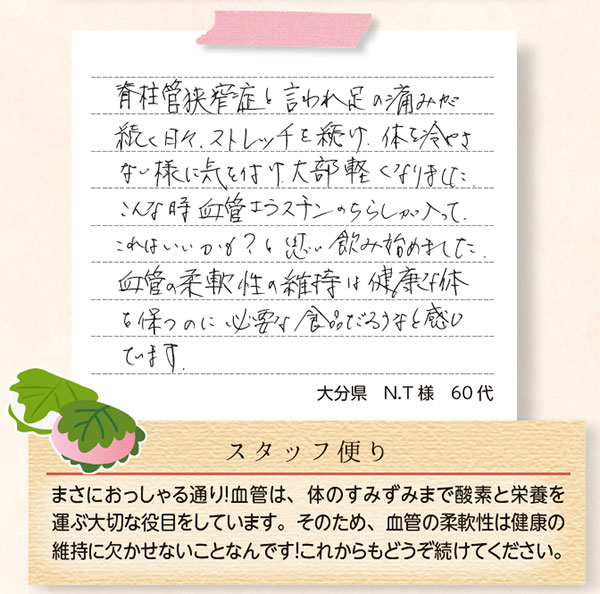 脊柱管狭窄症と言われ足の痛みが
続く日々、ストレッチを続け、体を冷やさ
ない様に気を付け、大部軽くなりました。
こんな時血管エラスチンのちらしが入って、
これはいいかも?と思い飲み始めました。
血管の柔軟性の維持は健康な体
を保つのに必要な食品だろうなと感じ
ています。
大分県 N.T様 60代
スタッフ便り
まさにおっしゃる通り!血管は、体のすみずみまで酸素と栄養を
運ぶ大切な役目をしています。そのため、血管の柔軟性は健康の
維持に欠かせないことなんです!これからもどうぞ続けてください。